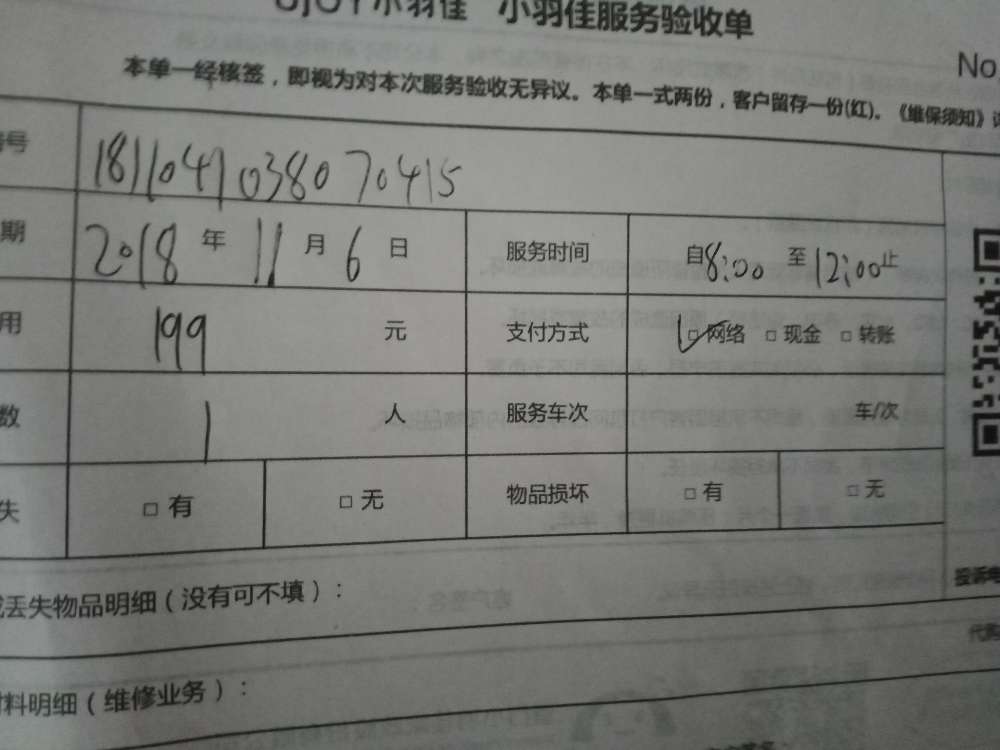 小羽佳 小羽佳服务验收单
No
本单一经核签，即视为对本次服务验收无异议。本单一式两份，客户留存一份(红)。《维保须知》
号 1811041038070415
期 2018年11月6日 服务时间 自8:00至12:00止
用 199元 支付方式 ☑网络 □现金 □转账
数 1人 服务车次 车/次
失 □有 □无 物品损坏 □有 □无
丢失物品明细（没有可不填）：
投诉电
料明细（维修业务）：